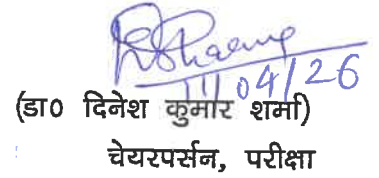 04/26
(डा० दिनेश कुमार शर्मा)
चेयरपर्सन, परीक्षा